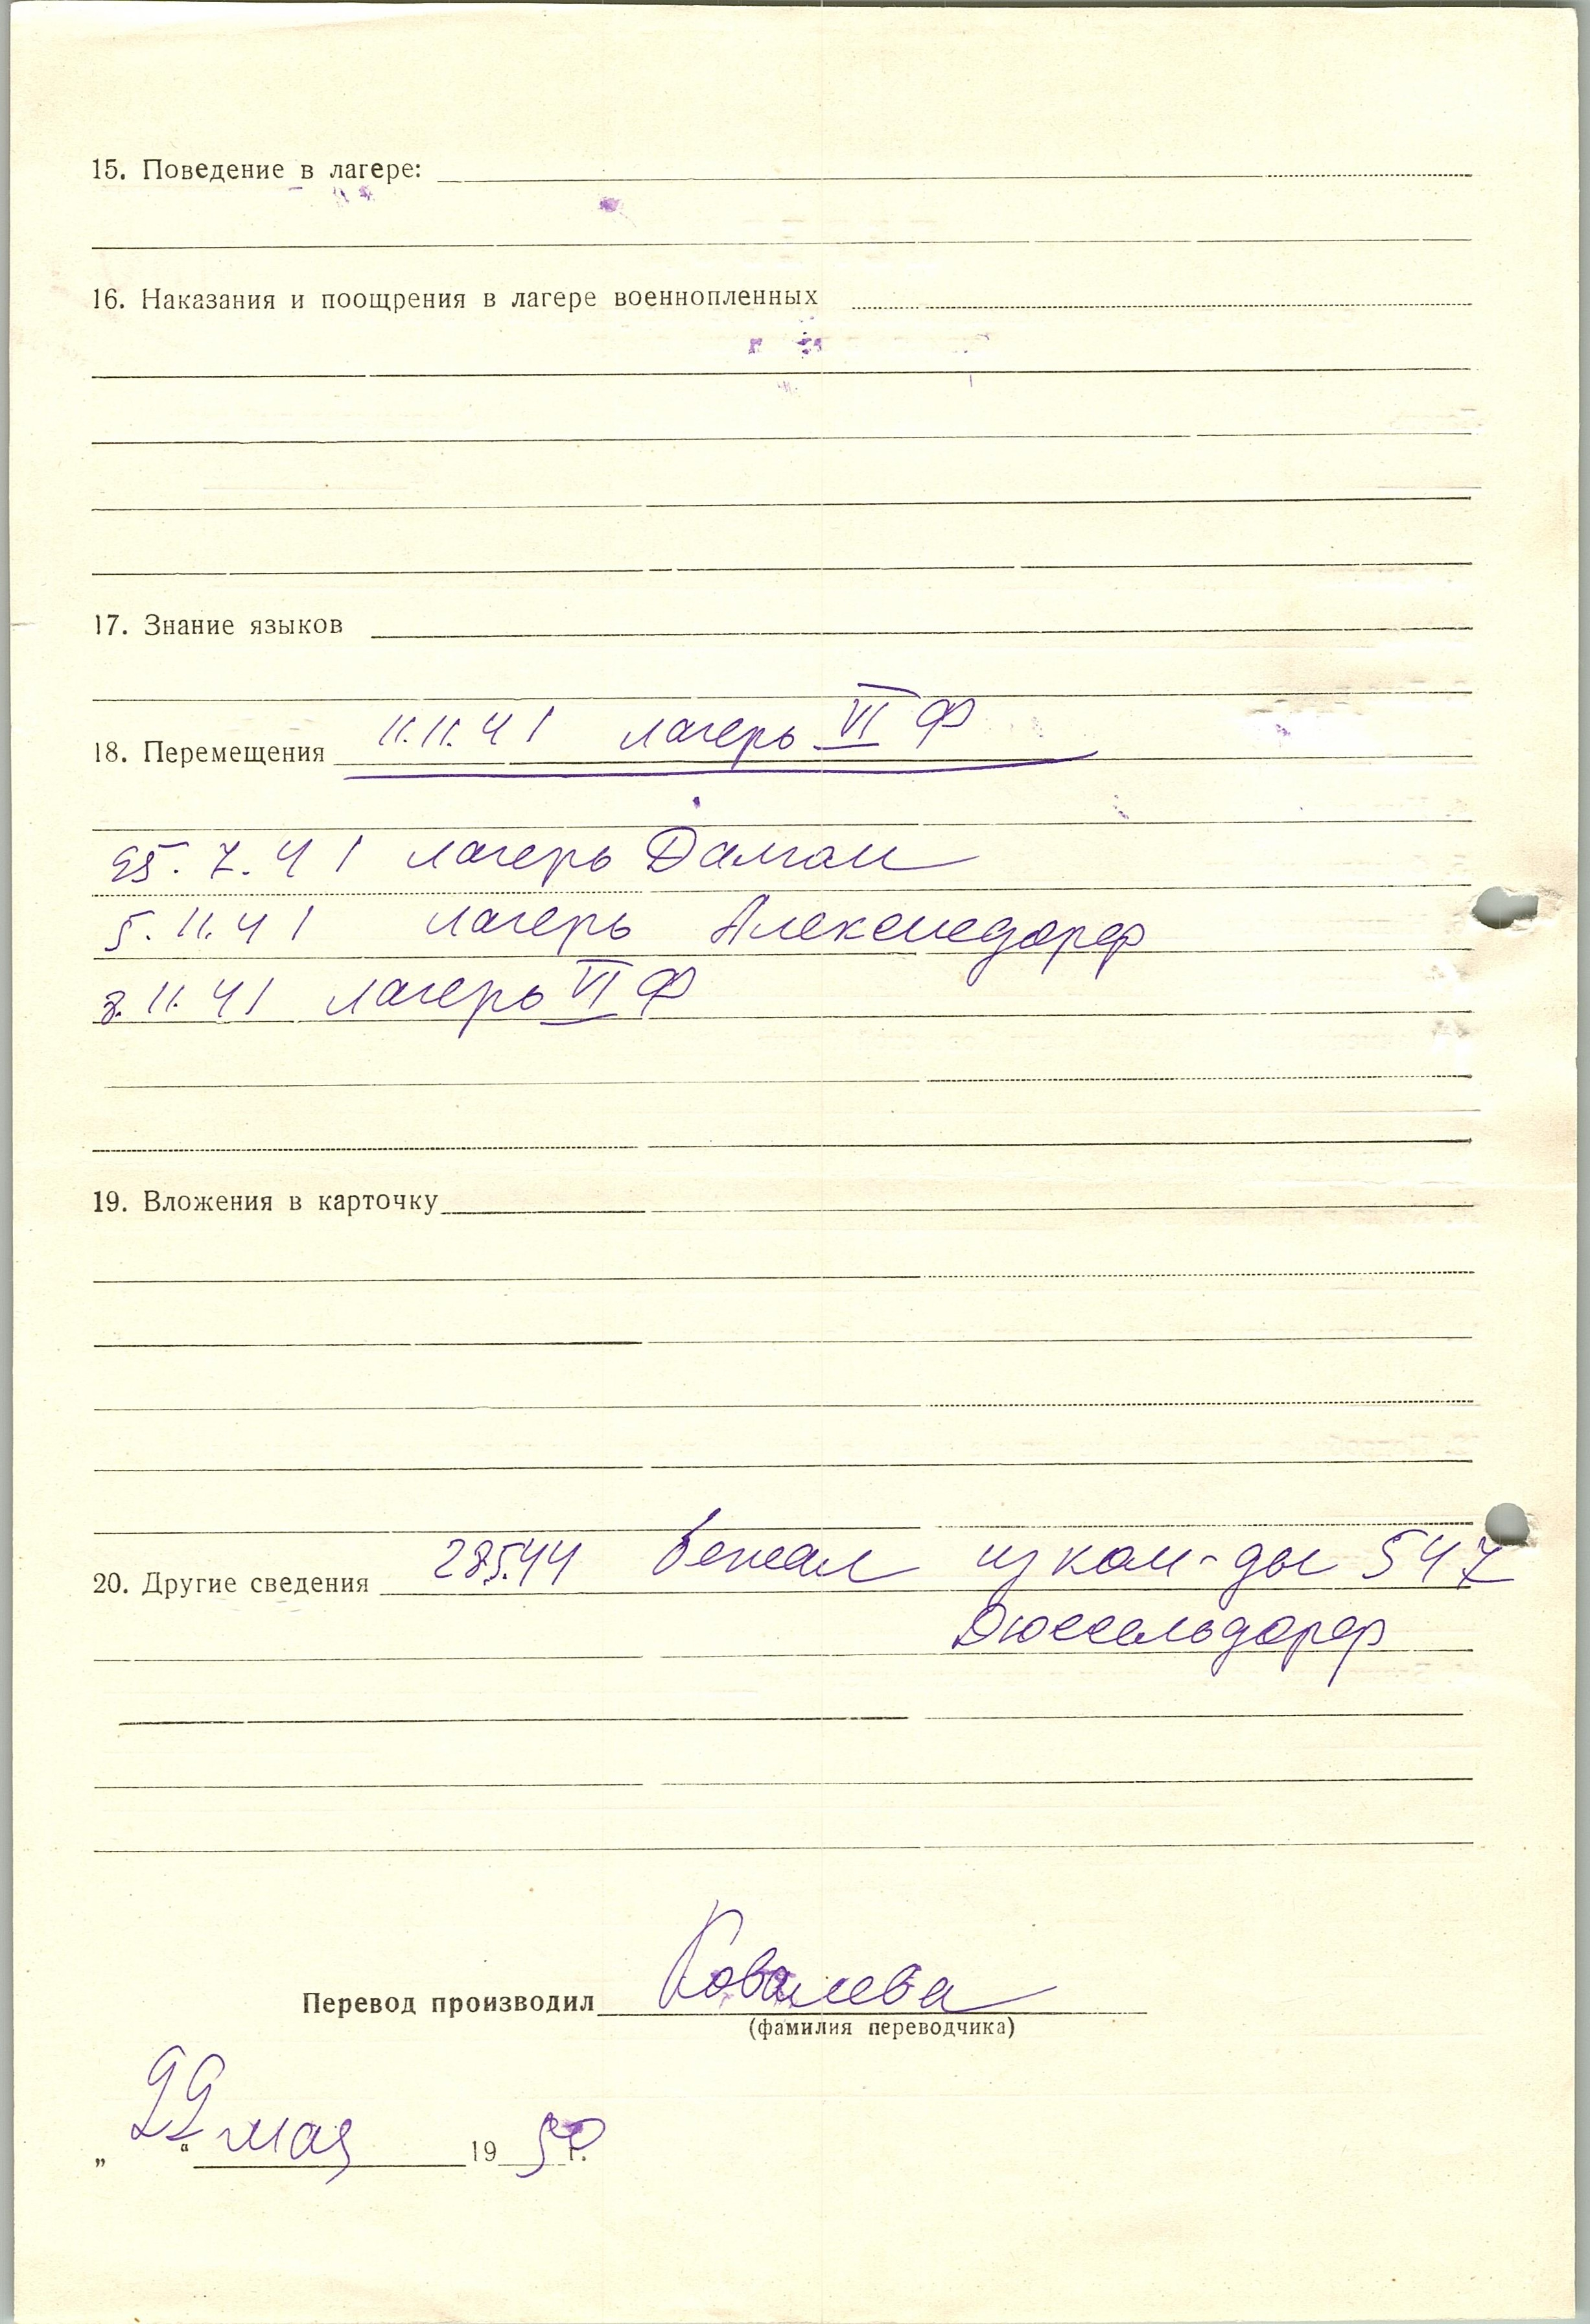 15. Поведение в лагере:
16. Наказания и поощрения в лагере военнопленных
17. Знание языков
18. Перемещения 11.11.41 лагерь VI Ф
25.7.41 лагерь
5.11.41 лагерь
8.11.41 лагерь VI Ф
19. Вложения в карточку
20. Другие сведения 28.5.44 бежал из ком-ды 547
Дюссельдорф
Перевод производил Ковалева
(фамилия переводчика)
„22“ мая 19 г.